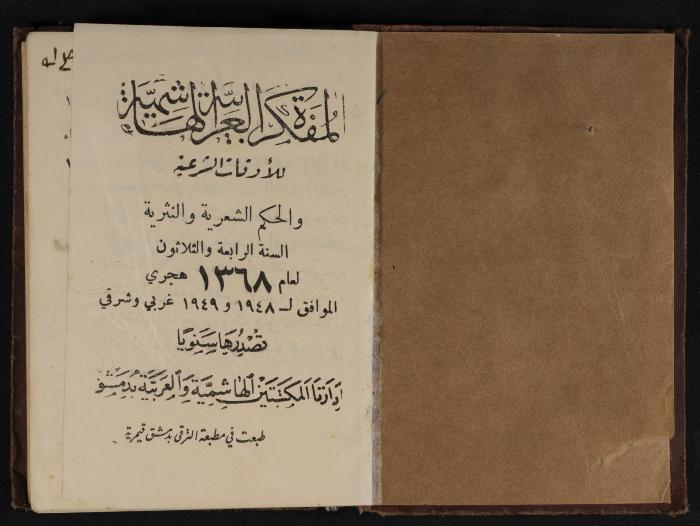 المفكرة العربية الهاشمية
للأوقات الشرعية
والحكم الشعرية والنثرية
السنة الرابعة والثلاثون
لعام ١٣٦٨ هجري
الموافق لـ ١٩٤٨ و ١٩٤٩ غربي وشرقي
تصدرها سنويا
إدارتا المكتبتين الهاشمية والعربية بدمشق
طبعت في مطبعة الترقي بدمشق قيمرية